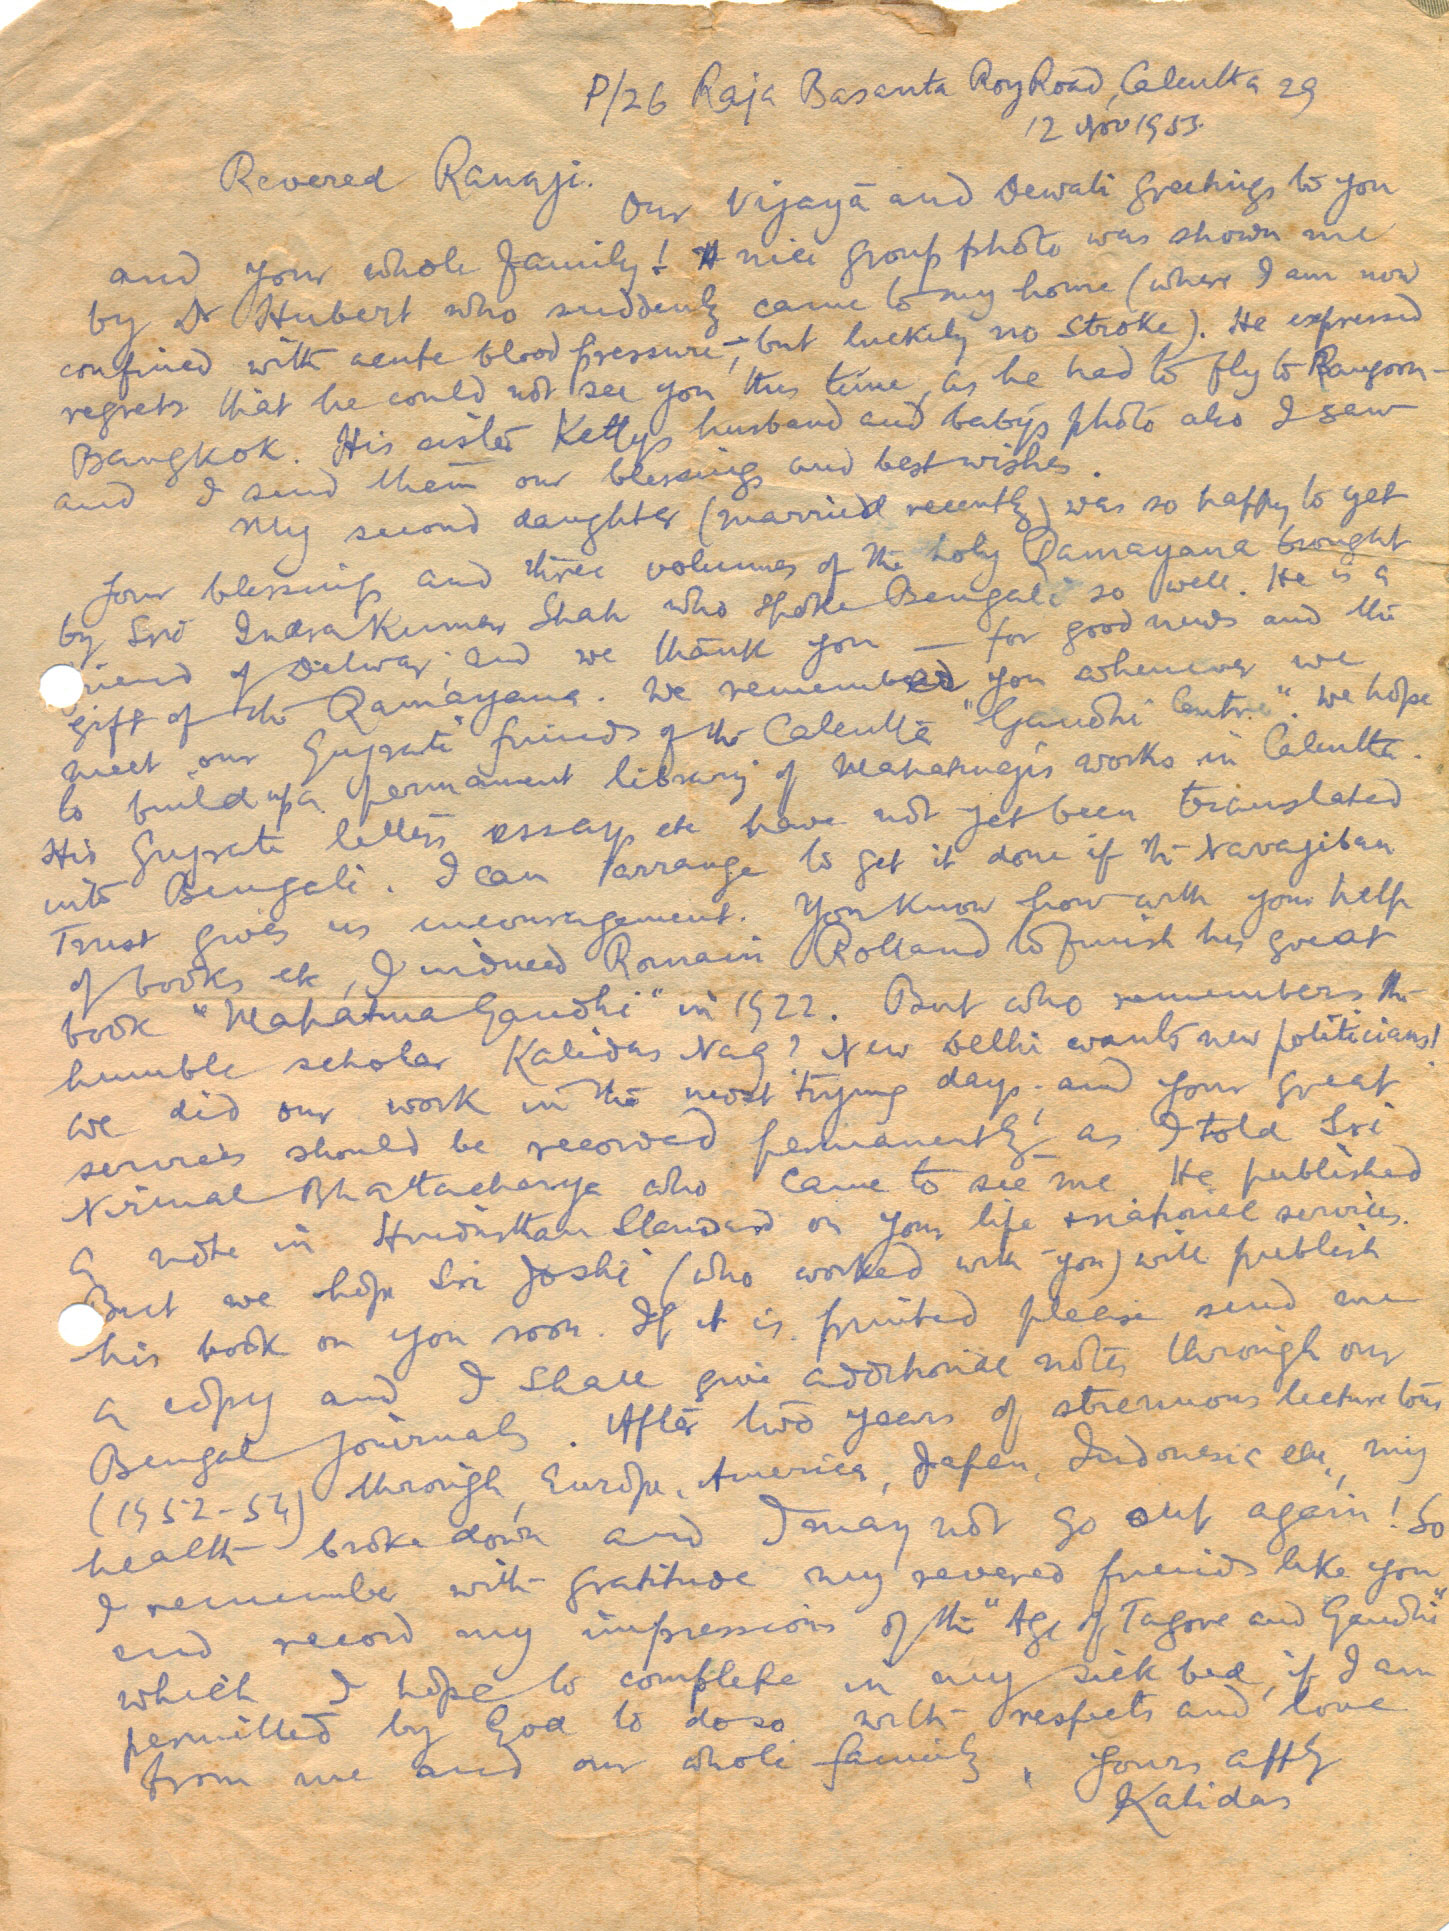 P/26 Raja Basanta Roy Road, Calcutta 29
12 Nov 1953.
Revered Ranaji.
Our Vijayā and Dewali greetings to you
and your whole family! A nice group photo was shown me
by Dr Hubert who suddenly came to my home (where I am now
confined with acute blood pressure –, but luckily no stroke). He expressed
regrets that he could not see you this time, as he had to fly to Rangoon–
Bangkok. His sister Kettys husband and babys photo also I saw
and I send them our blessings and best wishes.
My second daughter (married recently) was so happy to get
Your blessings and three volumes of the holy Ramayana brought
by Sri Indra Kumar Shah who spoke Bengali so well. He is a
friend of Dilwar, and we thank you – for good news and the
gift of the Ramāyana. We remembered you whenever we
meet our Gujrati friends of the Calcutta "Gandhi Centre". We hope
to build up a permanent library of Mahatmajis works in Calcutta.
His Gujrati letters essays etc have not yet been translated
into Bengali. I can arrange to get it done if the Navajiban
Trust gives us encouragement. You know how with your help
of books etc, I induced Romain Rolland to finish his great
book "Mahatma Gandhi" in 1922. But who remembers the
humble scholar Kalidas Nag? New Delhi wants new politicians!
We did our work in the most trying days and your great
services should be recorded permanently as I told Sri
Nirmal Bhattacharya who came to see me. He published
a note in Hindusthan Standard on your life & national services.
But we hope Sri Joshi (who worked with you) will publish
his book on you soon. If it is printed please send me
a copy and I shall give additional notes through our
Bengal journals. After two years of strenuous lecture tour
(1952-54) through Europe, America, Japan, Indonesia etc, my
health broke down and I may not go out again! So
I remember with gratitude my revered friends like you
and record my impressions of the "Age of Tagore and Gandhi"
which I hope to complete in my sick bed, if I am
permitted by God to do so with respects and love
from me and our whole family. Yours affly
Kalidas